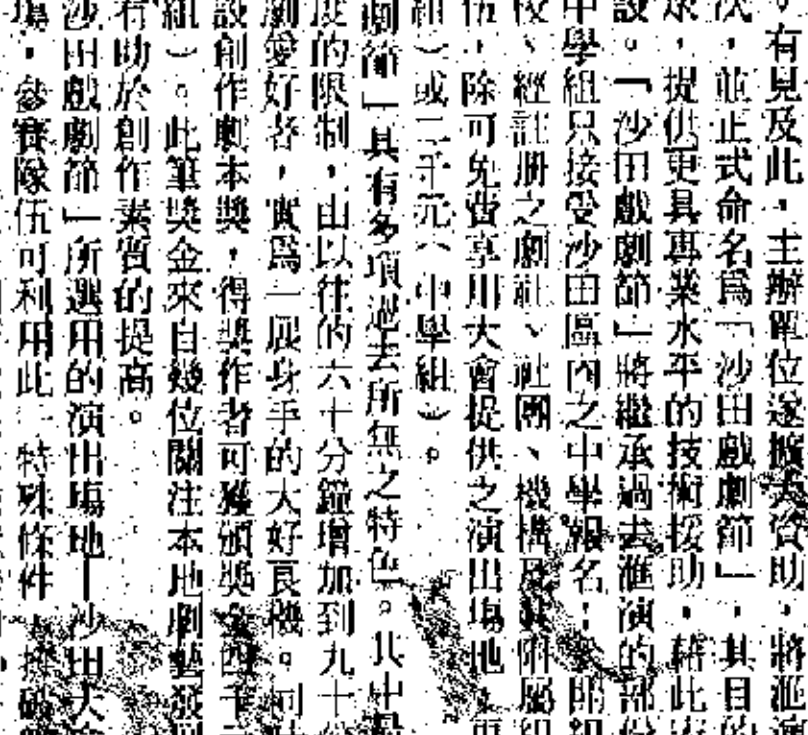 。有見及此,主辦單位遂擴大資助,將滙演
次,並正式命名為「沙田戲劇節」,其目的
永,提供更具專業水平的技術援助,藉此
設。「沙田戲劇節」將繼承過去滙演的部份
中學組只接受沙田區內之中學報名;
校、經註册之劇社、社團、機構及其附屬組
伍,除可免費享用大會提供之演出塲地,更
組)或二千元(中學組)。
劇節」具有多項過去所無之特色。其中最
度的限制,由以往的六十分鐘增加到九十分
劇愛好者,實為一展身手的大好良機。同時
設創作劇本獎,得獎作者可獲頒獎金四千元
組)。此筆獎金來自幾位關注本地劇藝發展
有助於創作素質的提高。
沙田戲劇節」所選用的演出塲地—沙田大會
塲,參賽隊伍可利用此一特殊條件,